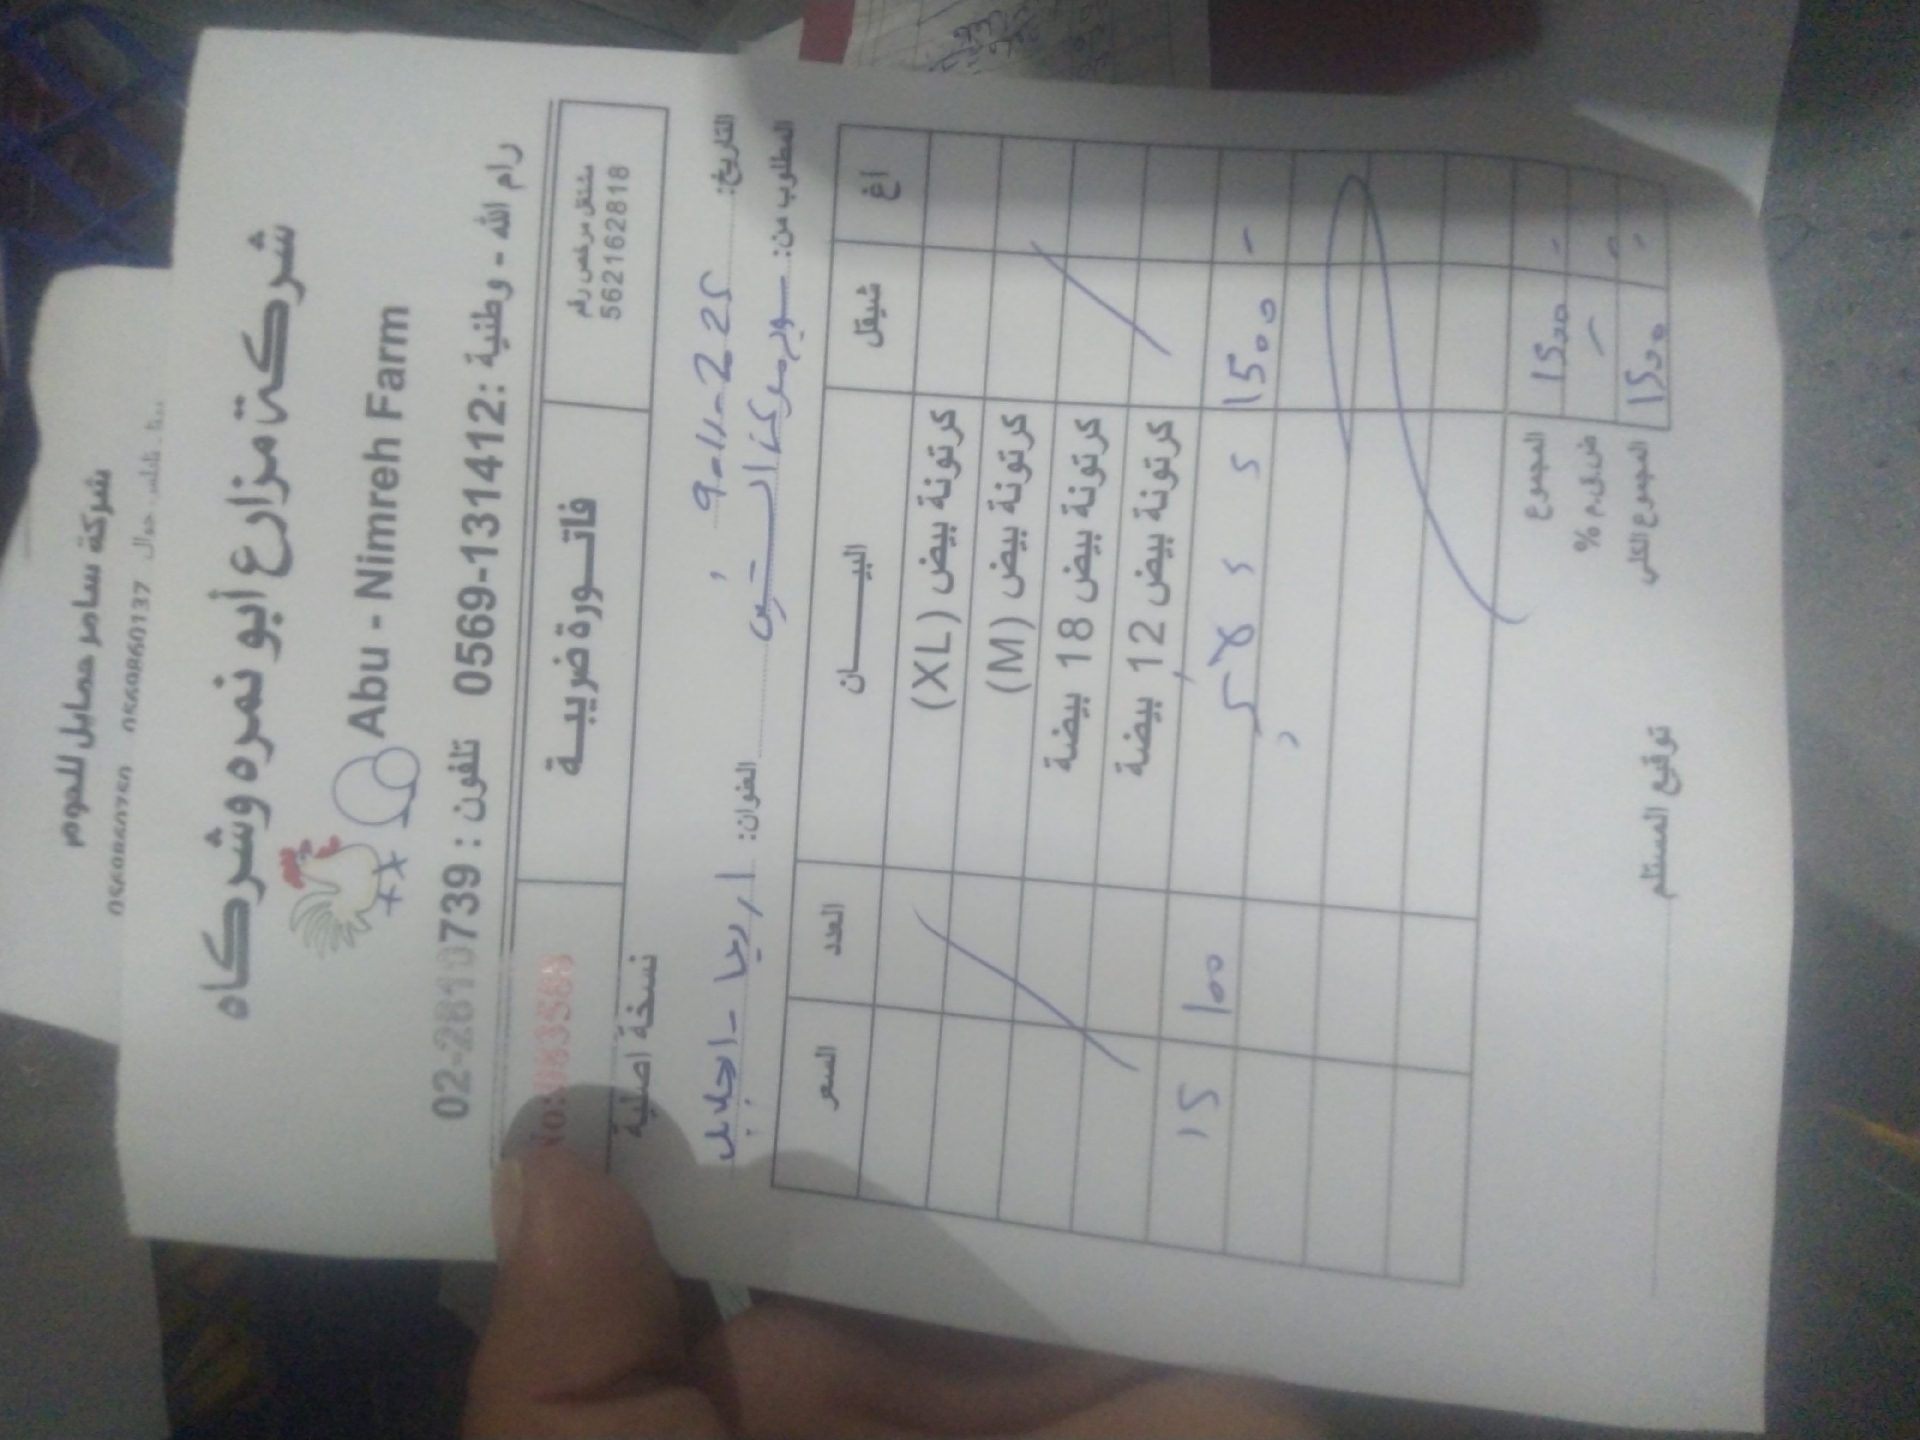 شركة سامر حمايل للحوم
شركة مزارع أبو نمره وشركاه
Abu - Nimreh Farm
رام الله - وطنية : 0569-131412 تلفون : 02-2810739
مشتغل مرخص رقم
562162818
فاتورة ضريبية
No: 083568
نسخة اصلية
التاريخ: 9-11-2025
المطلوب من: سوبر ماركت العنوان: اريحا -
البيان
السعر العدد البيان شيقل اغ
كرتونة بيض (XL)
كرتونة بيض (M)
كرتونة بيض 18 بيضة
كرتونة بيض 12 بيضة
15 100 1500 -
المجموع 1500 -
ض.ق.م %
المجموع الكلي 1500 -
توقيع المستلم